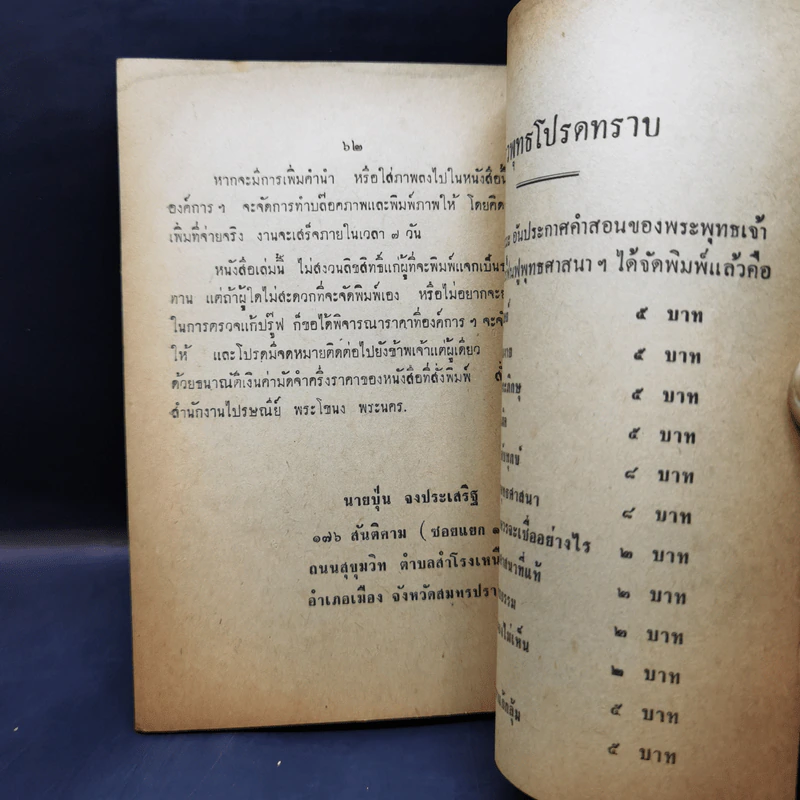 ๖๒
หากจะมีการเพิ่มคำนำ หรือใส่ภาพลงไปในหนังสือนี้
องค์การ ฯ จะจัดการทำบล๊อคภาพและพิมพ์ภาพให้ โดยคิด
เพิ่มที่จ่ายจริง งานจะเสร็จภายในเวลา ๗ วัน
หนังสือเล่มนี้ ไม่สงวนลิขสิทธิ์แก่ผู้ที่จะพิมพ์แจกเป็น
ทาน แต่ถ้าผู้ใดไม่สะดวกที่จะจัดพิมพ์เอง หรือไม่อยากจะ
ในการตรวจแก้ปรู๊ฟ ก็ขอได้พิจารณาราคาที่องค์การ ฯ จะ
ให้ และโปรดมีจดหมายติดต่อไปยังข้าพเจ้าแต่ผู้เดียว
ด้วยธนาณัติเงินค่ามัดจำครึ่งราคาของหนังสือที่สั่งพิมพ์
สำนักงานไปรษณีย์ พระโขนง พระนคร.
นายปุ่น จงประเสริฐ
๑๗๖ สันติคาม ( ซอยแยก ๑
ถนนสุขุมวิท ตำบลสำโรงเหนือ
อำเภอเมือง จังหวัดสมุทรปรา
พุทธโปรดทราบ
อันประกาศคำสอนของพระพุทธเจ้า
ฟื้นฟูพุทธศาสนา ฯ ได้จัดพิมพ์แล้วคือ
๕ บาท
๕ บาท
๕ บาท
๕ บาท
๘ บาท
พุทธศาสนา ๘ บาท
ควรจะเชื่ออย่างไร ๒ บาท
ศาสนาที่แท้ ๒ บาท
ธรรม ๒ บาท
ไม่เห็น ๒ บาท
๕ บาท
๕ บาท